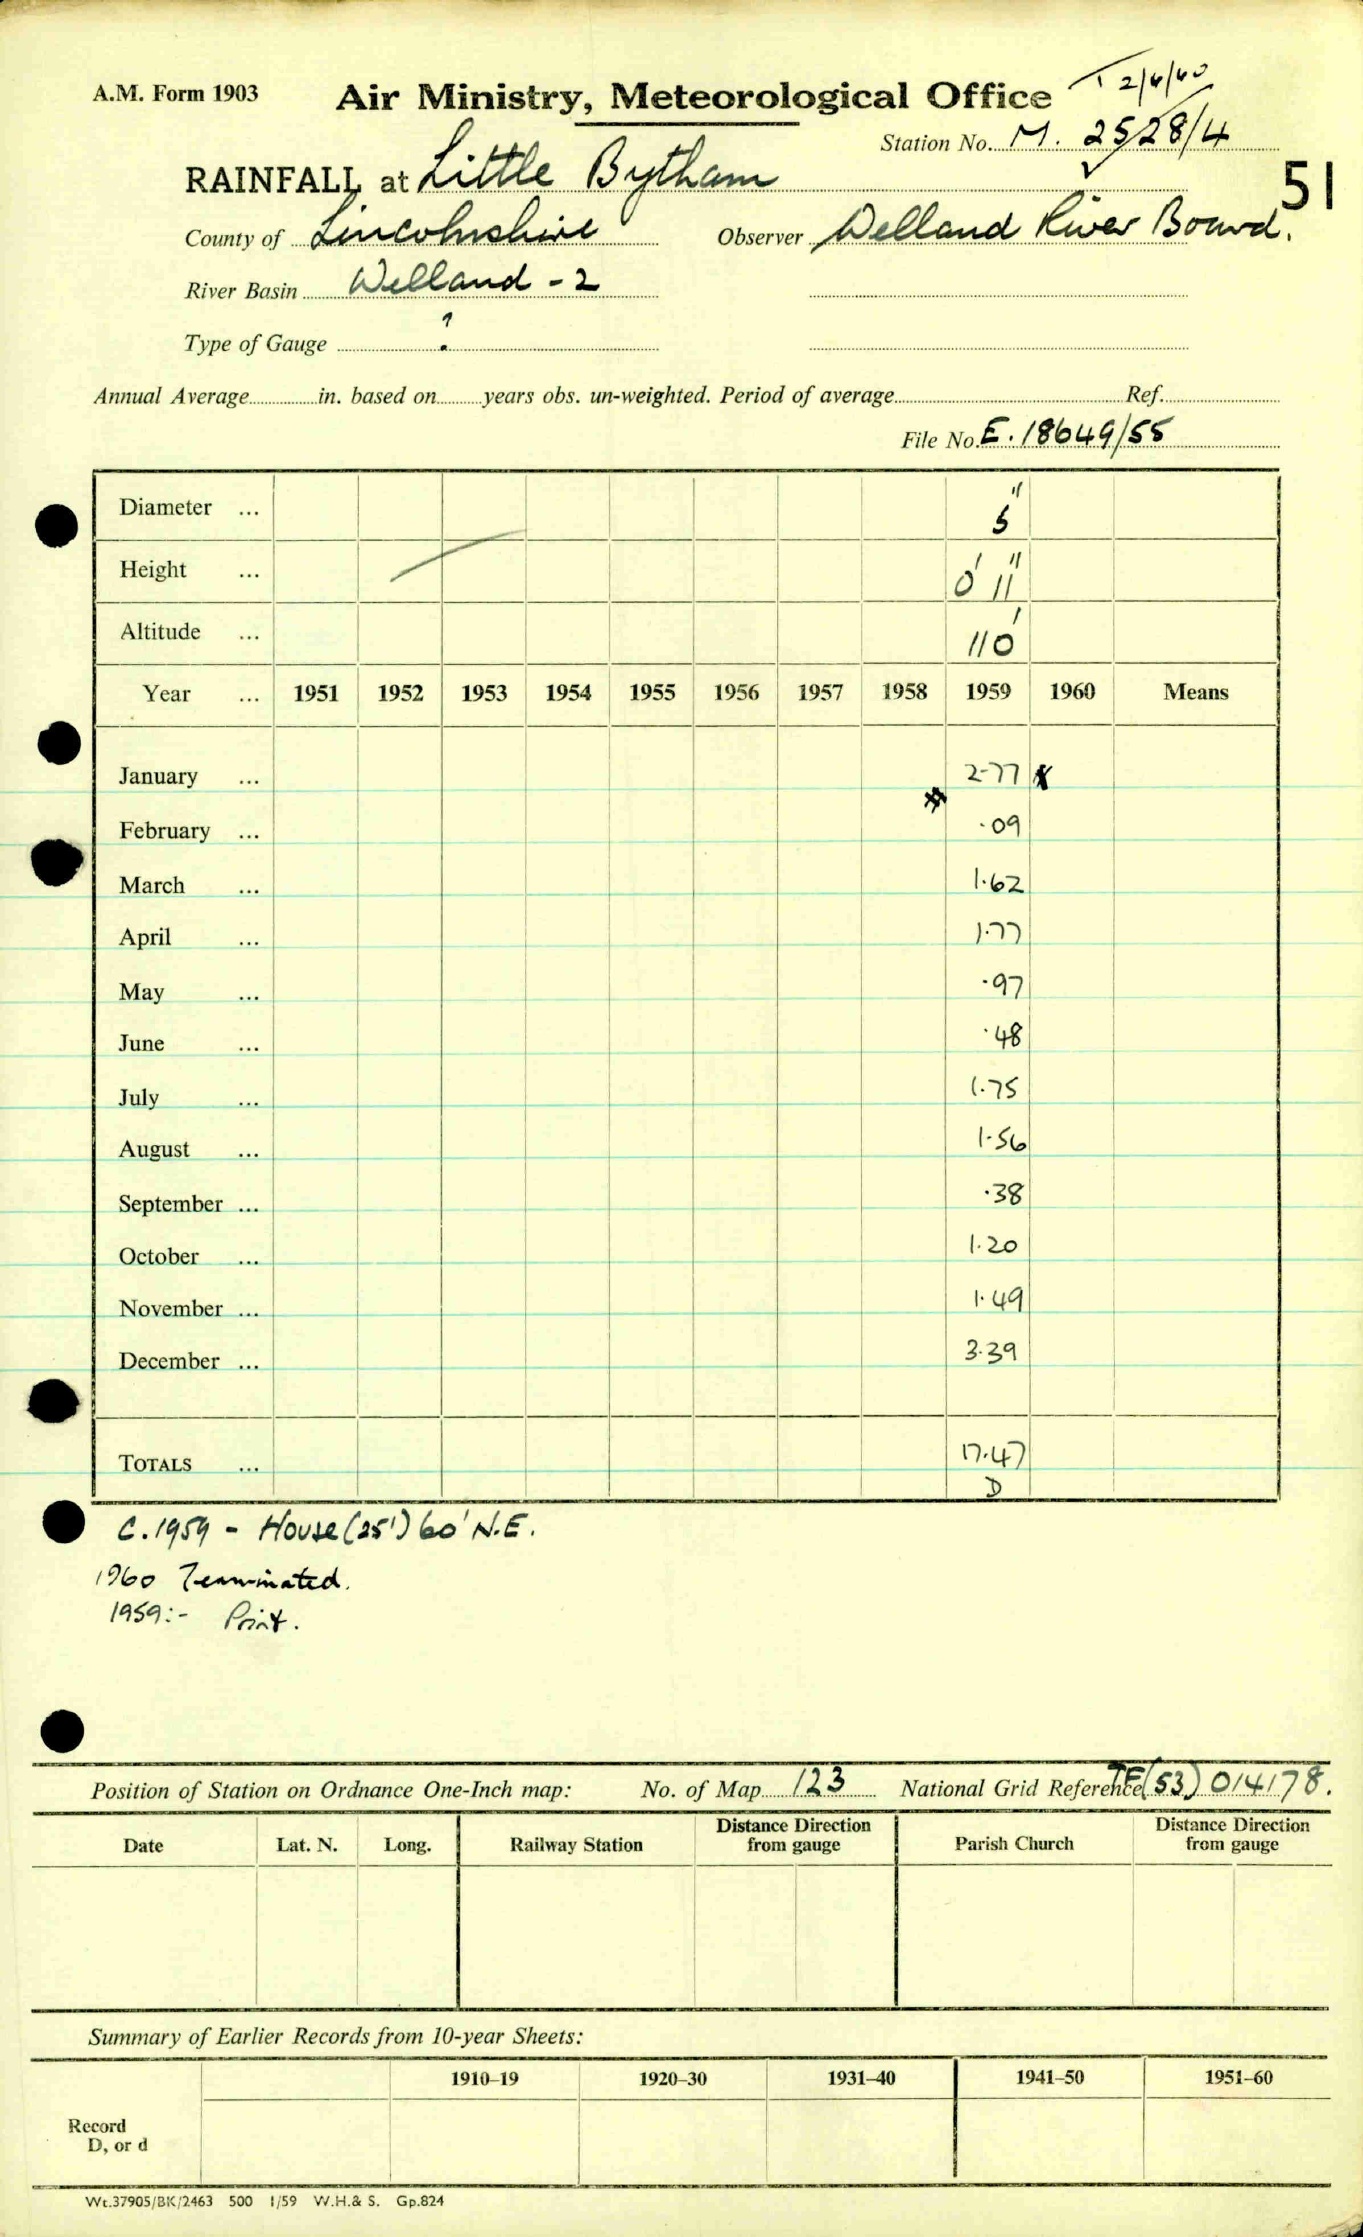 A.M. Form 1903 Air Ministry, Meteorological Office T 2/6/60
Station No. M. 2528/4
RAINFALL at Little Bytham 51
County of Lincolnshire Observer Welland River Board.
River Basin Welland - 2
Type of Gauge ?
Annual Average in. based on years obs. un-weighted. Period of average Ref.
File No. E. 18649/55
Diameter ... 5"
Height ... 0' 11"
Altitude ... 110'
Year ... 1951 1952 1953 1954 1955 1956 1957 1958 1959 1960 Means
January ... 2.77
February ... .09
March ... 1.62
April ... 1.77
May ... .97
June ... .48
July ... 1.75
August ... 1.56
September ... .38
October ... 1.20
November ... 1.49
December ... 3.39
TOTALS ... 17.47
D
C. 1959 - House (25') 60' N.E.
1960 Terminated.
1959:- Print.
Position of Station on Ordnance One-Inch map: No. of Map 123 National Grid Reference TF(53) 014178.
Date Lat. N. Long. Railway Station Distance Direction from gauge Parish Church Distance Direction from gauge
Summary of Earlier Records from 10-year Sheets:
1910–19 1920–30 1931–40 1941–50 1951–60
Record
D, or d
Wt.37905/BK/2463 500 1/59 W.H.& S. Gp.824